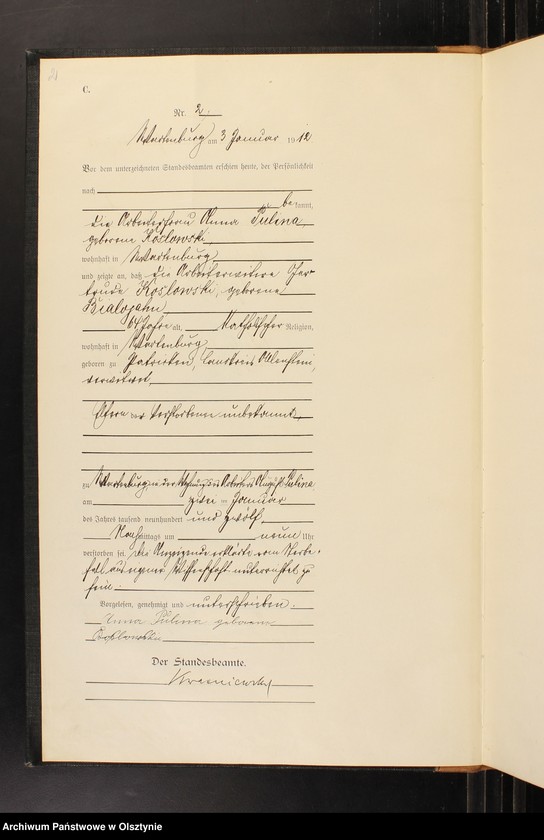 C.
Nr. 2.
Wartenburg am 3 Januar 1912
Vor dem unterzeichneten Standesbeamten erschien heute, der Persönlichkeit
nach
bekannt,
die Arbeiterfrau Anna Pulina
geborene Koslowski
wohnhaft in Wartenburg
und zeigte an, daß die Arbeiterwitwe Ger-
trude Koslowski, geborene
Bialojahn
64 Jahre alt, katholischer Religion,
wohnhaft in Wartenburg
geboren zu Patricken, Landkreis Allenstein,
verwitwet
Eltern der Verstorbenen unbekannt,
zu Wartenburg in der Wohnung des Arbeiters August Pulina
am zwei ten Januar
des Jahres tausend neunhundert und zwölf
Nachmittags um neun Uhr
verstorben sei. Die Anzeigende erklärte vom Sterbe-
fall aus eigener Wissenschaft unterrichtet zu
sein.
Vorgelesen, genehmigt und unterschrieben.
Anna Pulina geborene
Koslowski
Der Standesbeamte.
Archiwum Państwowe w Olsztynie